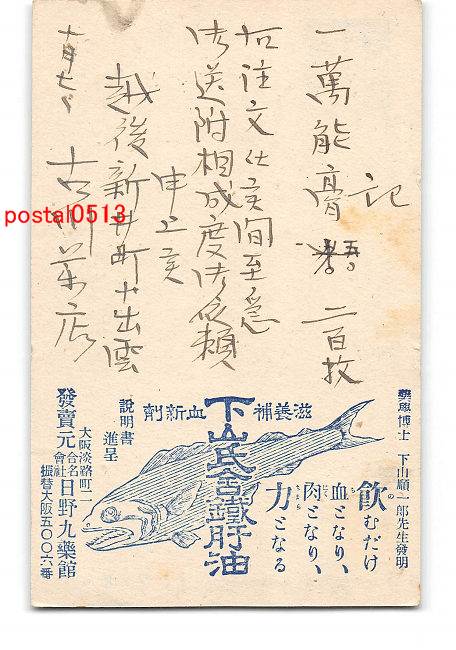 記
一萬能膏 二百枚
右注文仕候間至急
御送附相成度御依頼
申上候
越後新井町小出雲
十月七日
古川薬店
postal0513
藥學博士 下山順一郎先生發明
飲むだけ
血となり、
肉となり、
力となる
滋養補血新劑
下山氏含鐵肝油
説明書
進呈
發賣元
大阪淡路町二
合名會社 日野九藥館
振替大阪五〇〇六番